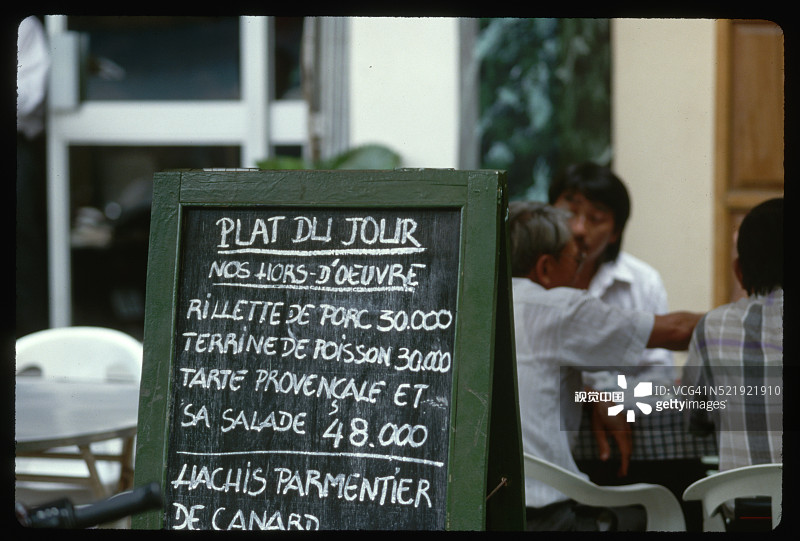 PLAT DU JOUR
NOS HORS-D'OEUVRE
RILLETTE DE PORC 30.000
TERRINE DE POISSON 30.000
TARTE PROVENÇALE ET
SA SALADE 48.000
HACHIS PARMENTIER
DE CANARD
视觉中国
ID:VCG41N521921910
gettyimages